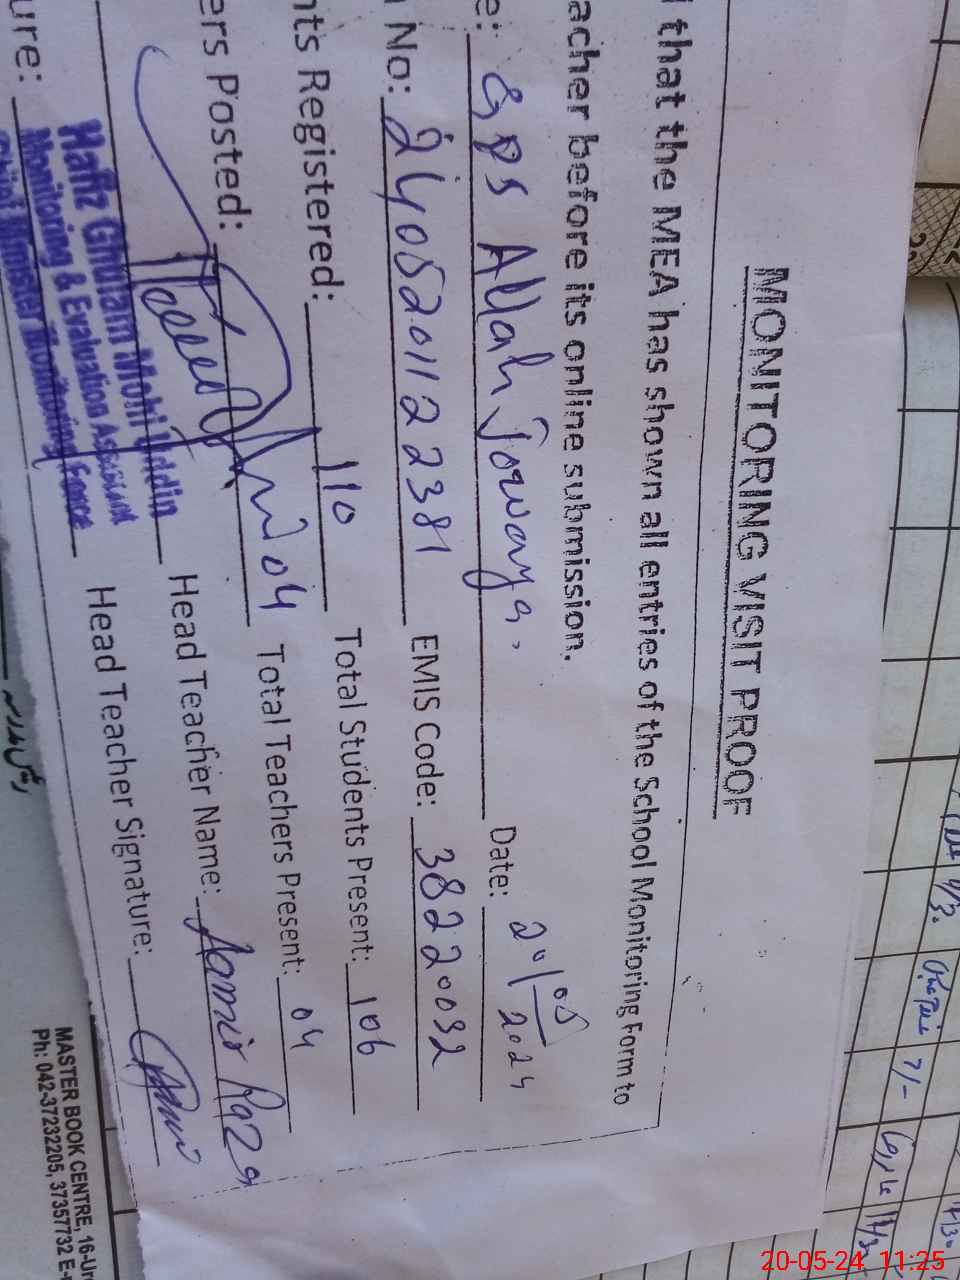 MONITORING VISIT PROOF
that the MEA has shown all entries of the School Monitoring Form to
acher before its online submission.
e: GPS Allah Jowaya. Date: 20/05/2024
No: 24052011 2 2381 EMIS Code: 38220032
nts Registered: 110 Total Students Present: 106
ers Posted: 04 Total Teachers Present: 04
Head Teacher Name: Jamir Raza
ure: Head Teacher Signature:
Hafiz Ghulam Mohi Uddin
Monitoring & Evaluation Assistant
Chief Minister Monitoring Force
MASTER BOOK CENTRE, 16-Ur
Ph: 042-37232205, 37357732 E-
20-05-24 11:25